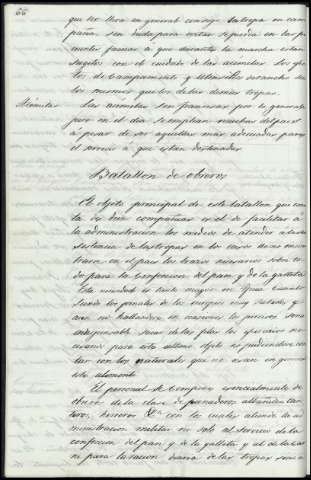 66
que se lleva en general consigo la tropa en cam
paña sin duda para evitar se pierda en las pe
nosas faenas a que durante la marcha están
sugetos con el cuidado de las acemilas. Los efec
tos de Campamento y utensilios marchan en
los mismos que los de las demas tropas.
Acémilas Las acemilas son francesas por lo general
pero en el dia se emplean muchas del pais
á pesar de ser aquellas mas adecuadas para
el servicio á que estan destinadas.
Batallon de obreros
El objeto principal de este batallon que cons
ta de diez compañias es el de facilitar á
la administracion los medios de atender á la sub
sistencia de las tropas en los casos de no encon
trarse en el pais los brazos necesarios sobre to
do para la confeccion del pan y de la galleta
Esta necesidad es tanto mayor en Francia cuanto
siendo los jornales de las mugeres muy subidos y
aun no hallandose en naciones les precisa como
indispensable sacar de las filas los operarios ne
cesarios para este ultimo objeto no pudiendose con
tar con los naturales que no usan en general
este alimento
El personal se compone esencialmente de
obreros de la clase de panaderos, albañiles car
teros, herreros &a con los cuales atiende la ad
ministracion militar no solo al servicio de la
confeccion del pan y de la galleta y al de la car
ne para la racion diaria de las tropas sino a